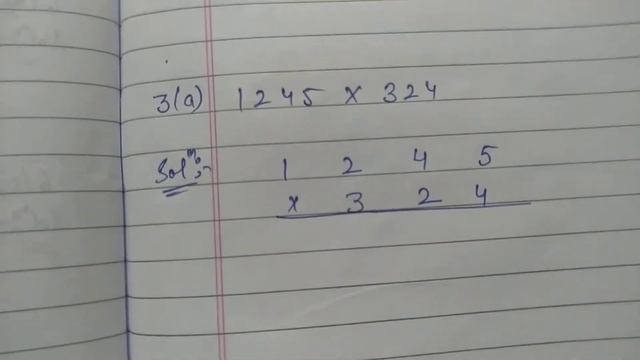 3(a) 1245 x 324
Solⁿ:-
1 2 4 5
x 3 2 4